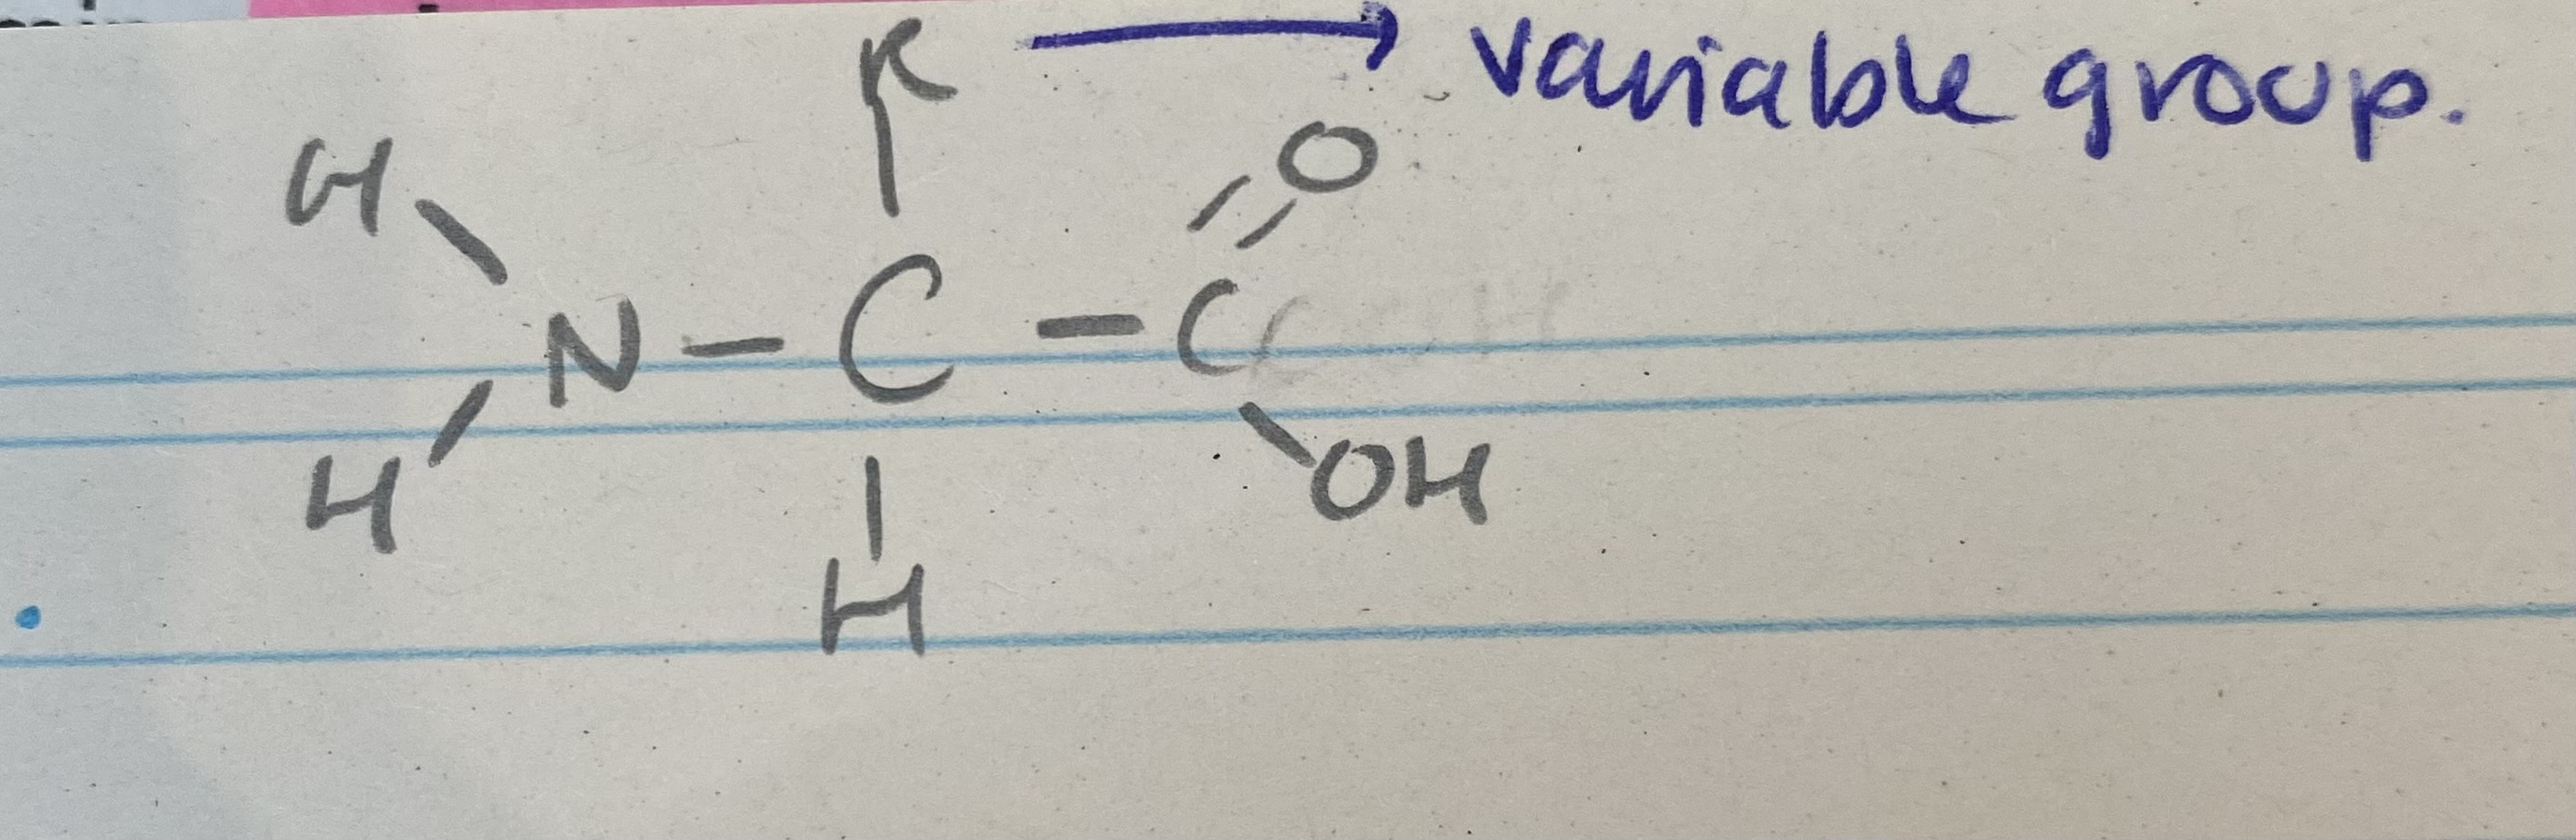 R → variable group.
H O
N - C - C
H OH
H